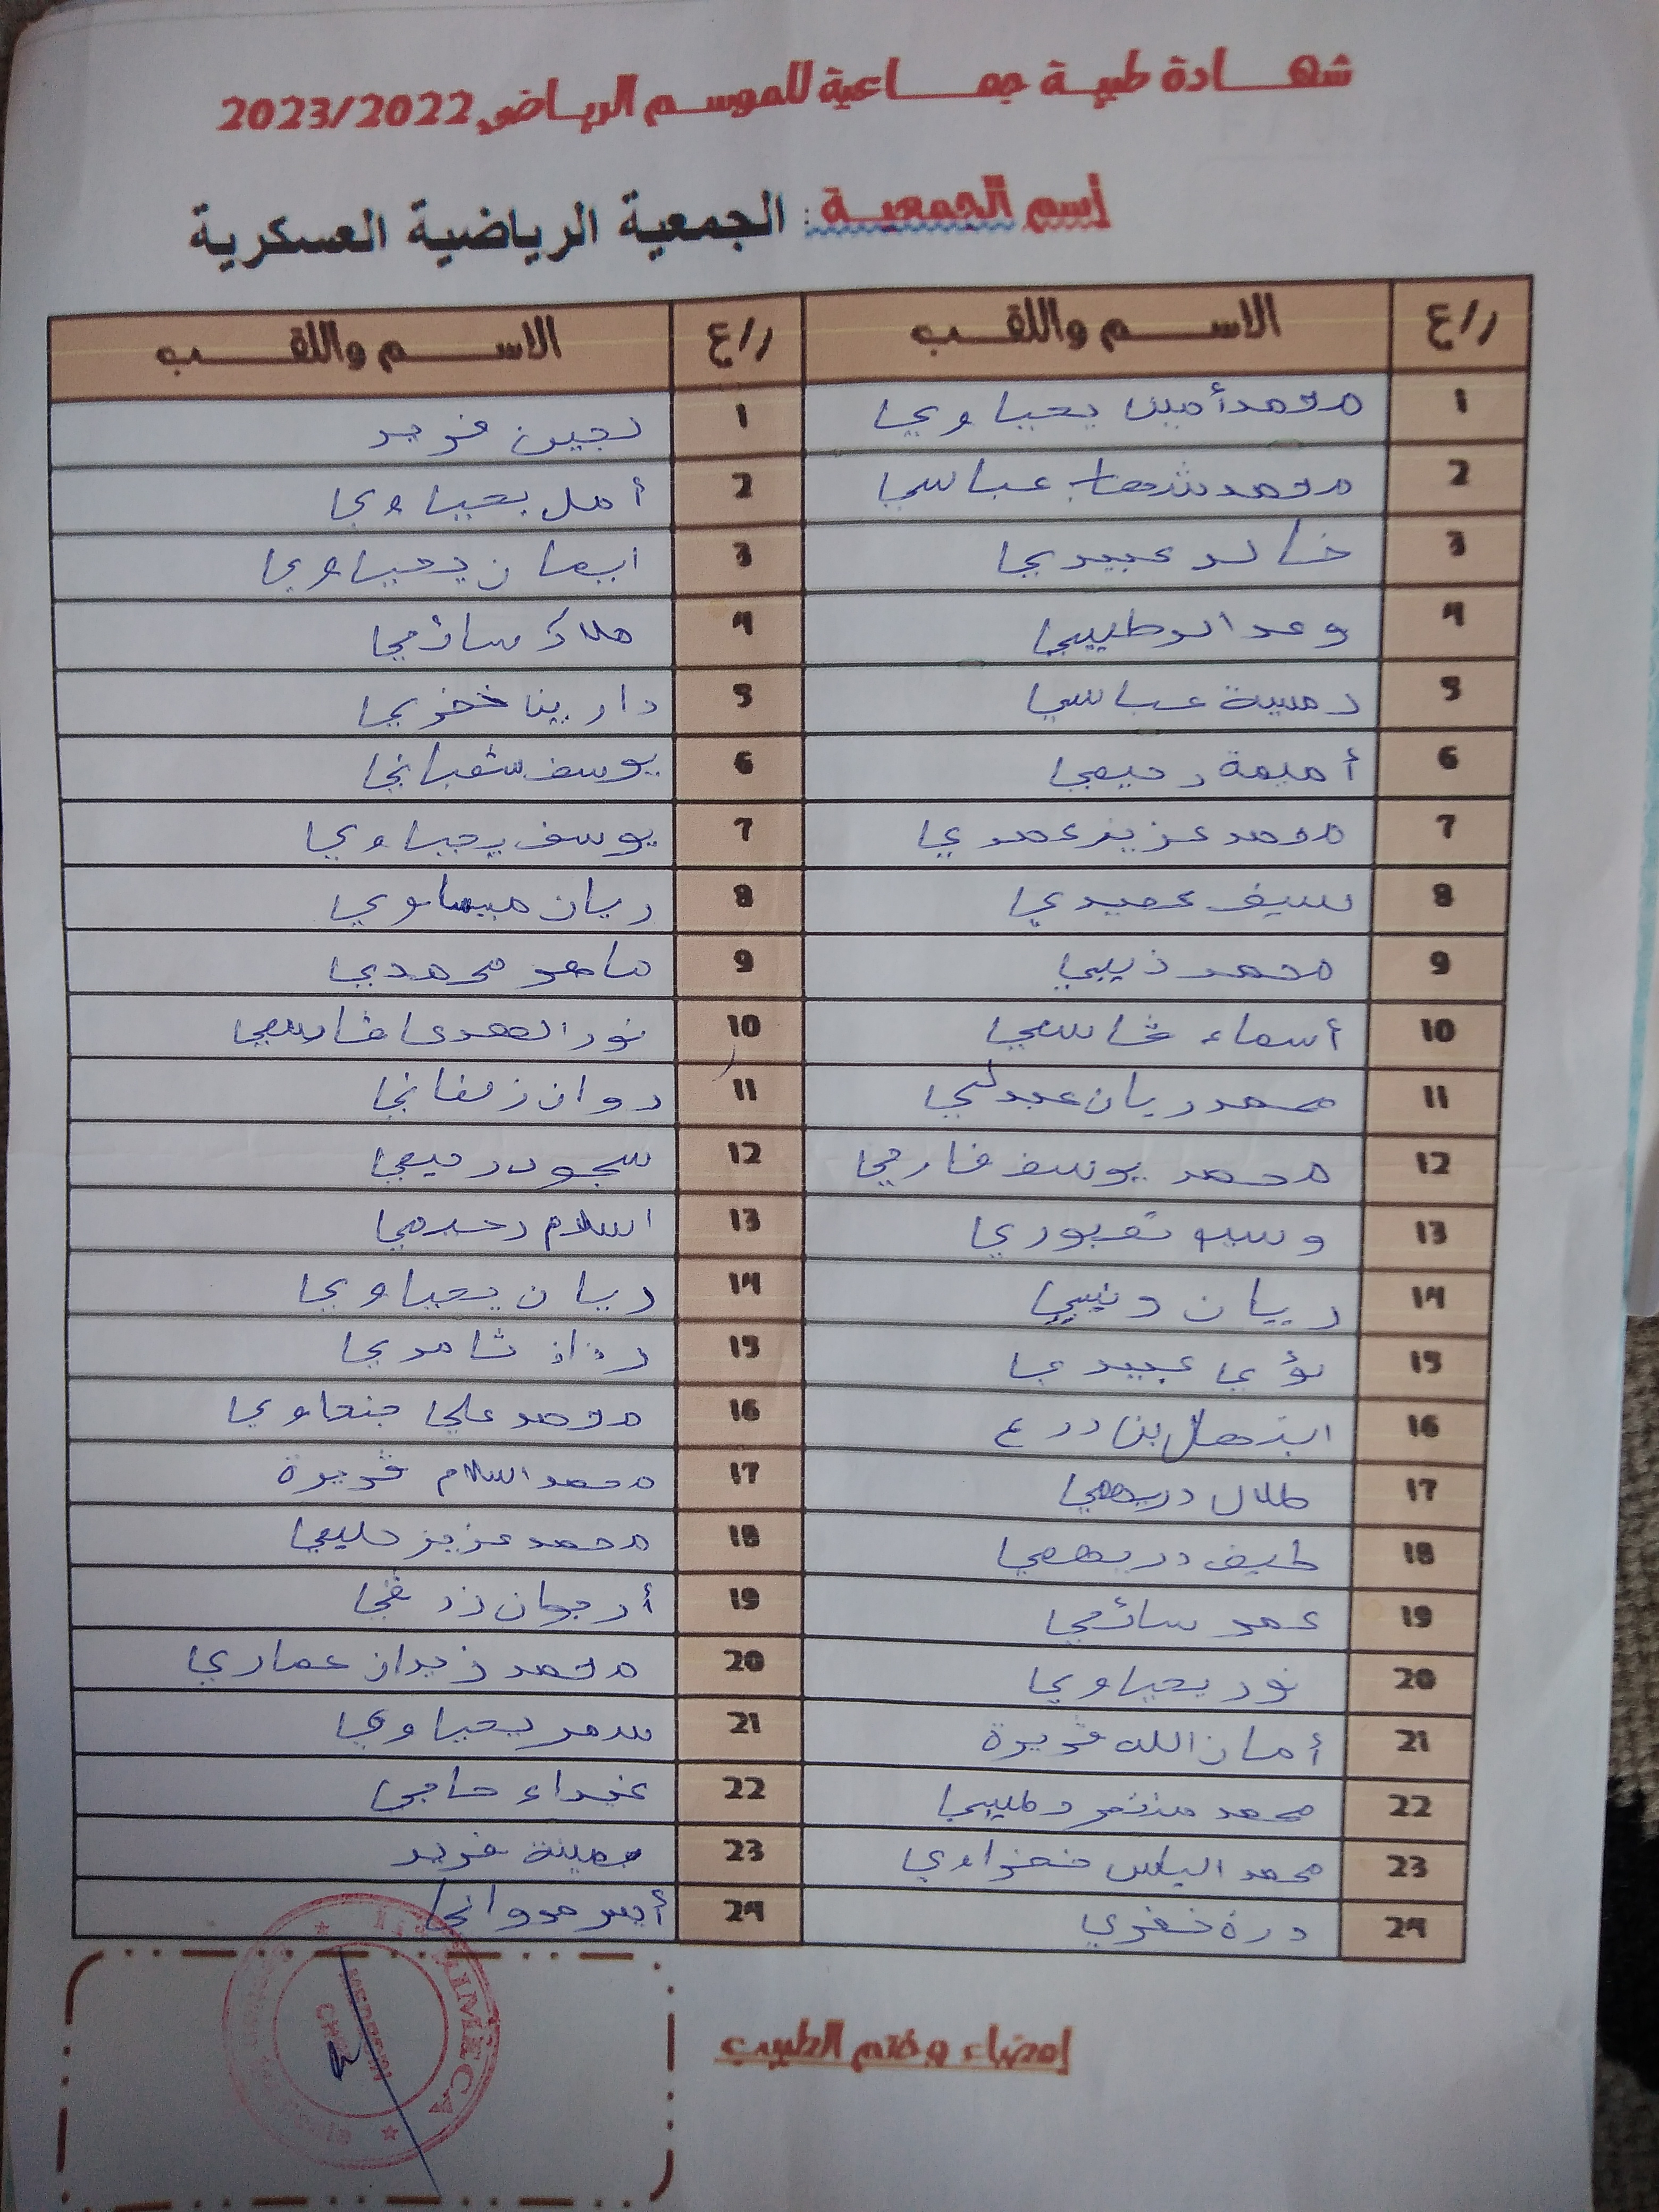 شهادة طبية جماعية للموسم الرياضي 2023/2022
إسم الجمعية: الجمعية الرياضية العسكرية
ر/ع الاسم واللقب ر/ع الاسم واللقب
1 محمد أمين يحياوي 1 لجين فريد
2 محمد شهاب عباسي 2 أمل يحياوي
3 خالد عبيدي 3 ايمان يحياوي
4 وعد الوطيبي 4 ملاك سائمي
5 رمسة عباسي 5 دارينا خضري
6 أميمة رحيمي 6 يوسف شعباني
7 محمد عزيز عمري 7 يوسف يحياوي
8 سيف عميدي 8 ريان ميساوي
9 محمد ذيبي 9 ماهر محمدي
10 أسماء قاسمي 10 نور الهدى قاسمي
11 محمد ريان عبدلي 11 روان زلفاني
12 محمد يوسف فارحي 12 سجود رحيمي
13 قبوري 13 اسلام رحيمي
14 ريان 14 ريان يحياوي
15 لؤي عبيدي 15 ثامري
16 ابتهال بن درع 16 محمد علي جنحاوي
17 طلال دريهمي 17 محمد السلام قريرة
18 طيف دريهمي 18 محمد عزيز حليمي
19 عمر سائمي 19 أرجوان زرقي
20 نور يحياوي 20 محمد زيدان عماري
21 أمان الله قريرة 21 سمر يحياوي
22 محمد منتصر وطيبي 22 غيداء حاجي
23 محمد الياس نفزاوي 23 مينة فريد
24 درة خضري 24 أيسر مرواني
إمضاء وختم الطبيب